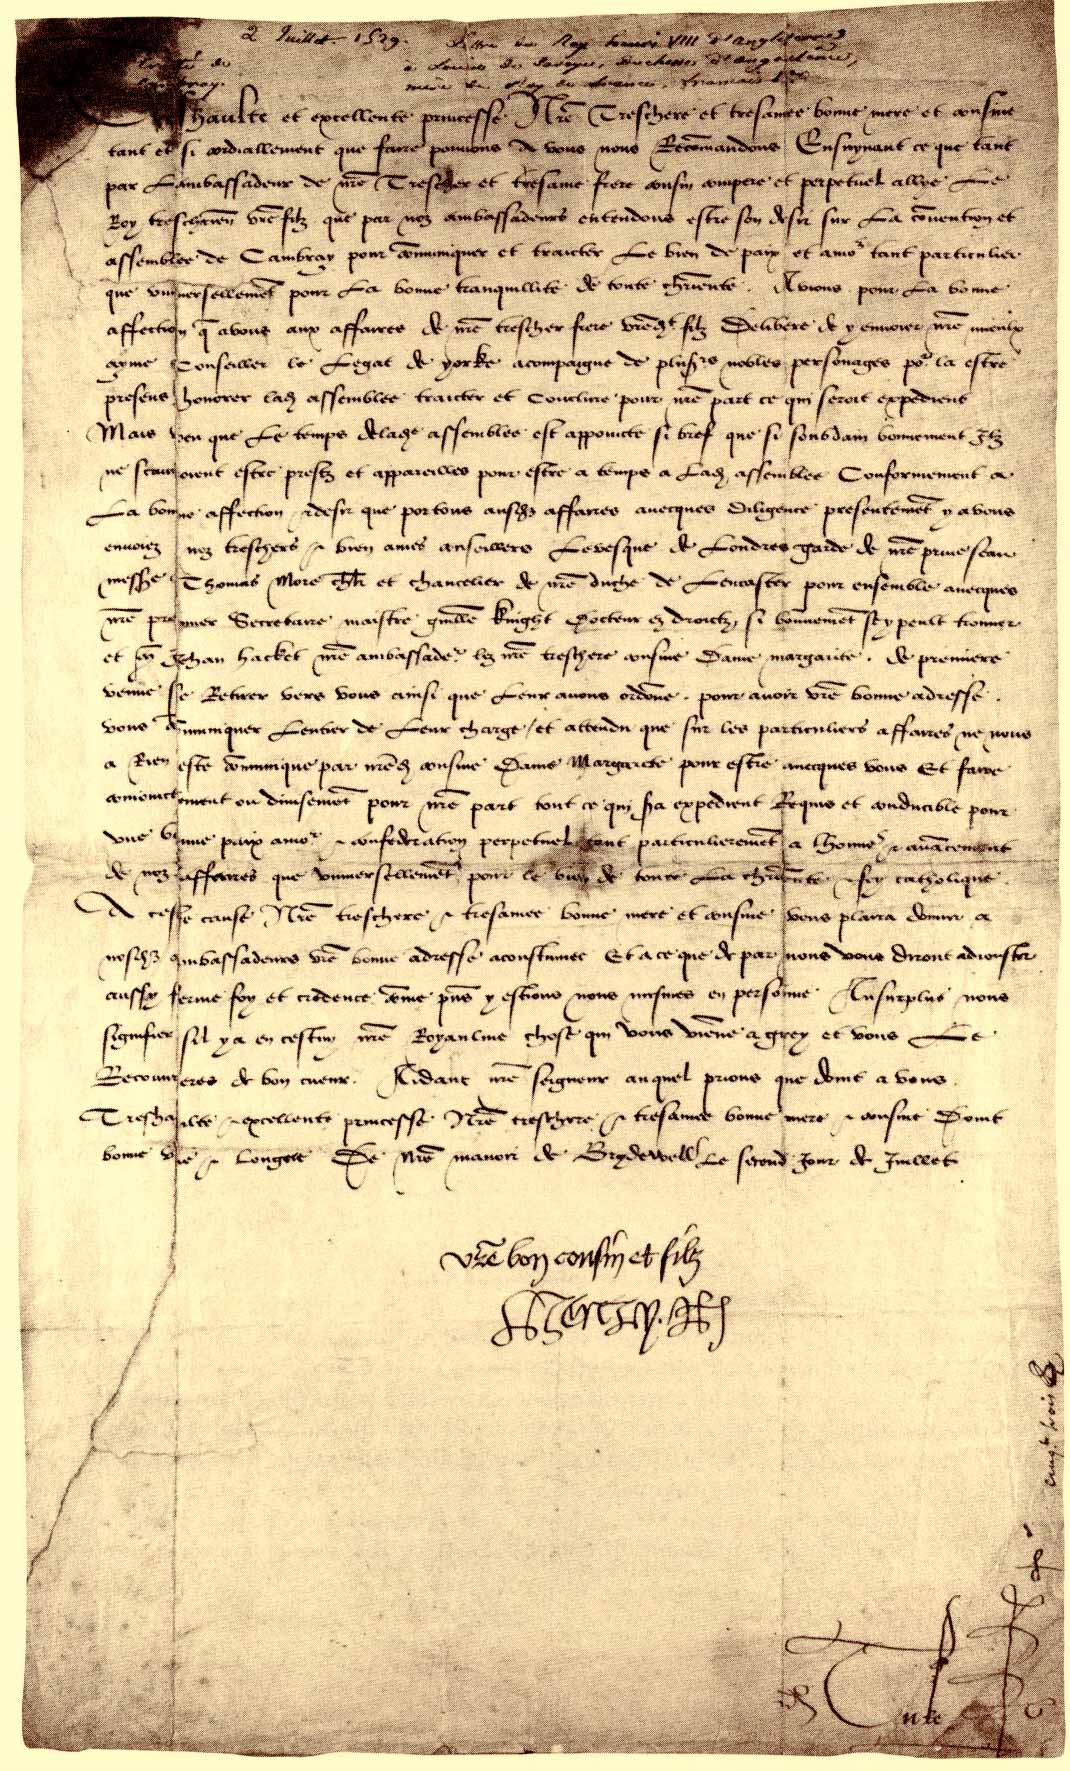 2 Juillet. 1529. Lettre du Roy henri VIII d'Angleterre
à Louise de Savoye, duchesse d'Angoulême,
mere du Roy de France, francois 1er
Traité de
Cambray.
Treshaulte et excellente princesse Nre Treschere et tresamee bonne mere et cousine
tant et si cordiallement que faire pouuons A vous nous Recomandons Ensuyuant ce que tant
par Lambassadeur de nre Trescher et tresame frere cousin compere et perpetuel allye Le
Roy treschrien vre filz que par noz ambassadeurs entendons estre son desir sur La conention et
assemblee de Cambray pour comuniquer et traicter Le bien de paix et amor tant particulier
que vniuersellemet pour La bonne tranquillite de toute chriente. Auions pour La bonne
affection q avons aux affaires de nre trescher frere vredt filz Delibere de y enuoier nre mieulx
ayme Conseiller le Legat de yorke acompaigne de plusrs nobles personages por la estre
presens honorer lad assemblee traicter et Conclure pour nre part ce qui seroit expedient
Mais veu que Le temps deladt assemblee est appoincte si bref que si soubdain bonnement Ilz
ne scauroient estre prestz et appareilles pour estre a temps a Lad assemblee Conformement a
La bonne affection & desir que portons ausd affaires auecques diligence presentemet y avons
enuoiez noz treschers & bien ames conseillers Levesque de Londres garde de nre priue seau
messre Thomas More chlr et chancelier de nre duche de Lencaster pour ensemble auecques
nre premier Secretaire maistre guille knight Docteur ez droictz, si bonnemet sey peult trouuer
et Jehan hacket nre ambassader lez nre treschere cousine Dame margarite. de premiere
venue se Retirer vers vous ainsi que Leur avons ordone. pour auoir vre bonne adresse.
vous comuniquer Lentier de Leur charge / et attendu que sur les particuliers affaires ne nous
a Rien este comunique par nred cousine Dame Margarete pour estre auecques vous Et faire
conioinctement ou diuisemet pour nre part tout ce qui sra expedient Requis et conducible pour
vne bonne paix amor & confederation perpetuel tant particulieremet a lhonner & auacement
de noz affaires que vniuersellemet pour le bien de toute La chriente & foy catholique.
A ceste cause Nre treschere & tresamee bonne mere et cousine vous plaira donner a
nosd ambassadeurs vre bonne adresse acoustumee Et a ce que de par nous vous diront adiouster
aussy ferme foy et credence come sy estions nous mesmes en personne Ausurplus nous
signifier sil y a en cestuy nre Royaulme chose qui vous viene a grey et vous Le
Recouureres de bon cueur. Aidant nre seigneur auquel prions que doint a vous.
Treshaulte & excellente princesse Nre treschere & tresamee bonne mere & cousine Doint
bonne vie & longue De nre manoir de Brydewell Le second Jour de Juillet
vre bon cousin et filz
HENRY. R
Tuke